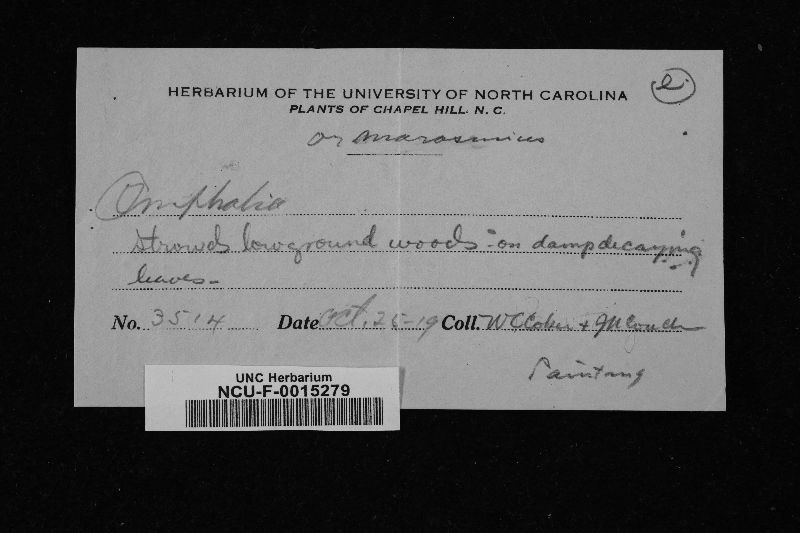 e.
HERBARIUM OF THE UNIVERSITY OF NORTH CAROLINA
PLANTS OF CHAPEL HILL. N. C.
or Marasmius
Omphalia
Strowds lowground woods - on damp decaying
leaves -
No. 3514 Date Oct. 25-19 Coll. W C Coker + J N Couch
Painting
UNC Herbarium
NCU-F-0015279